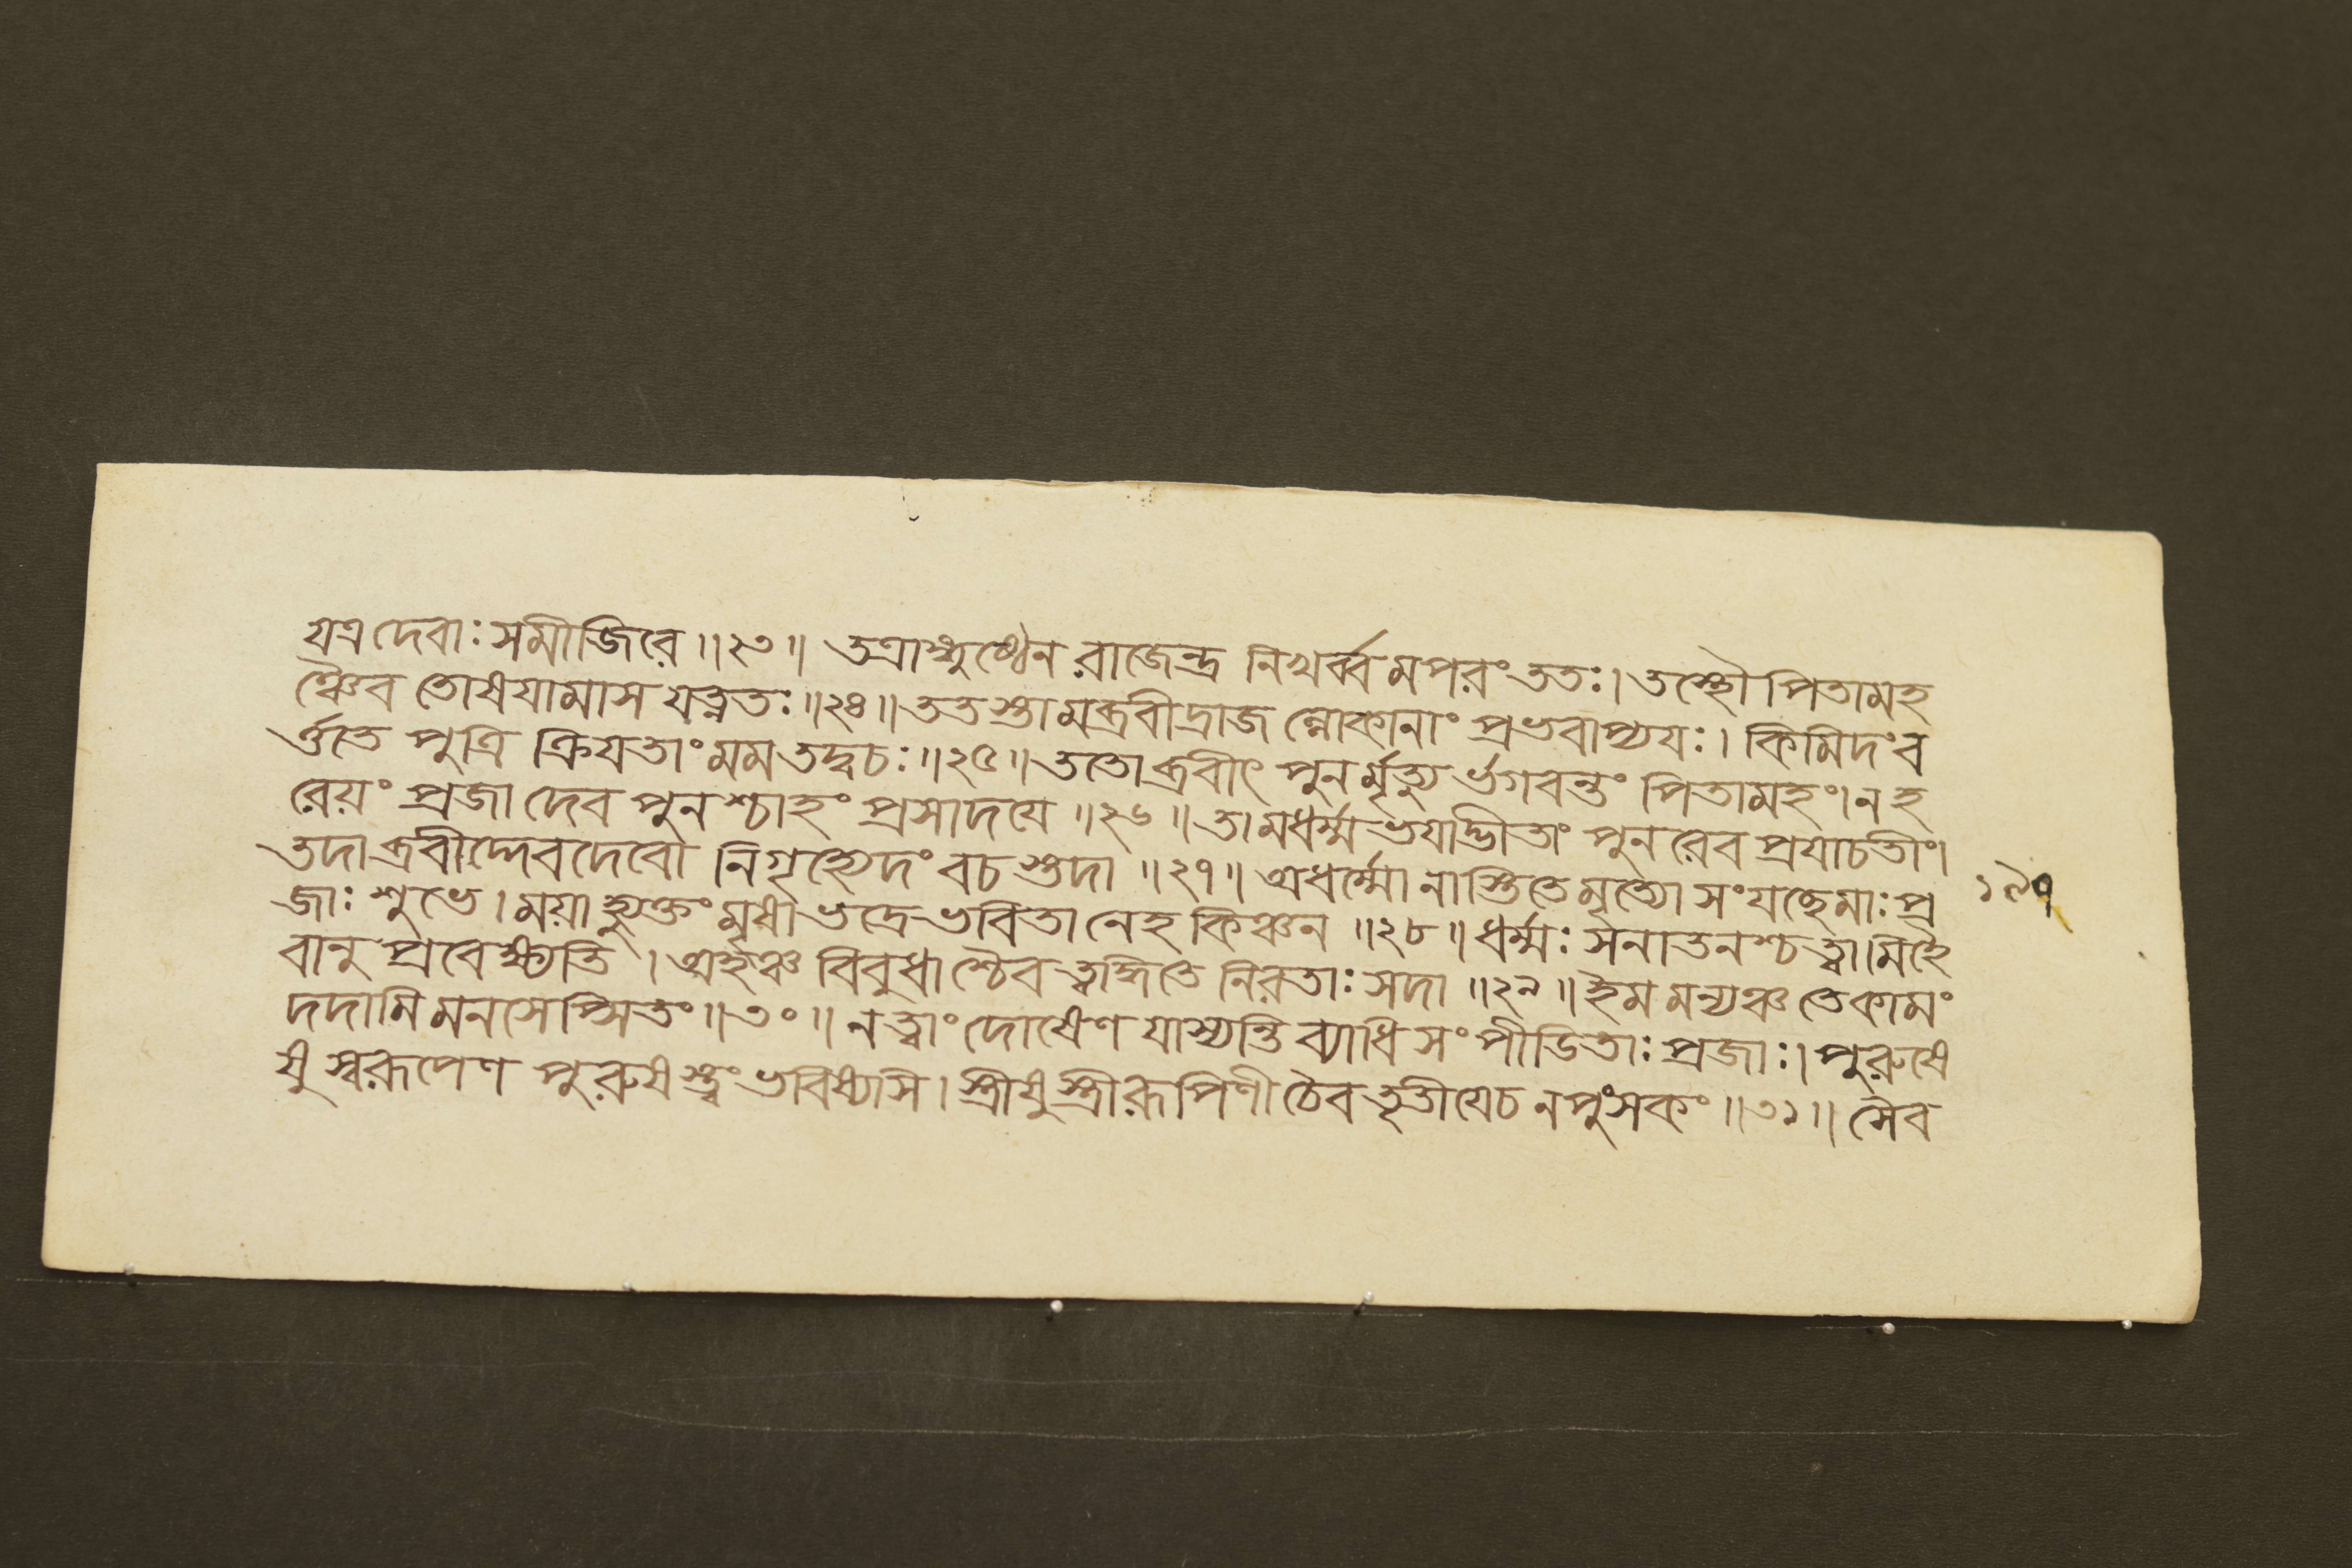 যত্র দেবাঃ সমীজিরে ॥২৩॥ তত্রাঙ্গুষ্ঠেন রাজেন্দ্র নিখর্ব্বমপরং ততঃ। তস্থৌ পিতামহ
ঞ্চৈব তোষযামাস যত্নতঃ ॥২৪॥ ততস্তামব্রবীদ্রাজ ল্লোকানাং প্রভবাপ্যযঃ। কিমিদং ব
র্ত্ততে পুত্রি ক্রিযতাং মম তদ্বচঃ ॥২৫॥ ততোব্রবীৎ পুনর্মৃত্যু র্ভগবন্তং পিতামহং। ন হ
রেয়ং প্রজা দেব পুনশ্চাহং প্রসাদযে ॥২৬॥ তামধর্ম্মভযাদ্ভীতাং পুনরেব প্রযাচতীং।
তদাব্রবীদ্দেবদেবো নিগৃহ্যেদং বচস্তদা ॥২৭॥ অধর্ম্মো নাস্তি তে মৃত্যো সংযচ্ছেমাঃ প্র
জাঃ শুভে। ময়াহ্যুক্তং মৃষা ভদ্রে ভবিতা নেহ কিঞ্চন ॥২৮॥ ধর্ম্মঃ সনাতনশ্চ ত্বামিহৈ
বানু প্রবেক্ষ্যতি। অহঞ্চ বিবুধাশ্চৈব ত্বদ্ধিতে নিরতাঃ সদা ॥২৯॥ ইমমন্যঞ্চ তে কামং
দদামি মনসেপ্সিতং ॥৩০॥ ন ত্বাং দোষেণ যাস্যন্তি ব্যাধিসংপীডিতাঃ প্রজাঃ। পুরুষে
ষু স্বরূপেণ পুরুষস্ত্বং ভবিষ্যসি। স্ত্রীষু স্ত্রীরূপিণী চৈব তৃতীযেচ নপুংসকং ॥৩১॥ সৈব
১৯৭